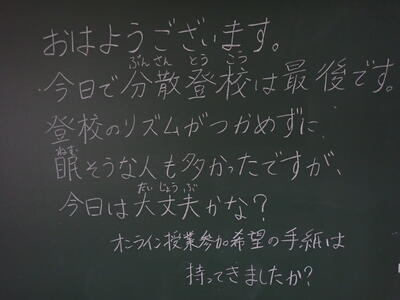 おはようございます。
今日で分散登校は最後です。
登校のリズムがつかめずに、
眠そうな人も多かったですが、
今日は大丈夫かな?
オンライン授業参加希望の手紙は
持ってきましたか?